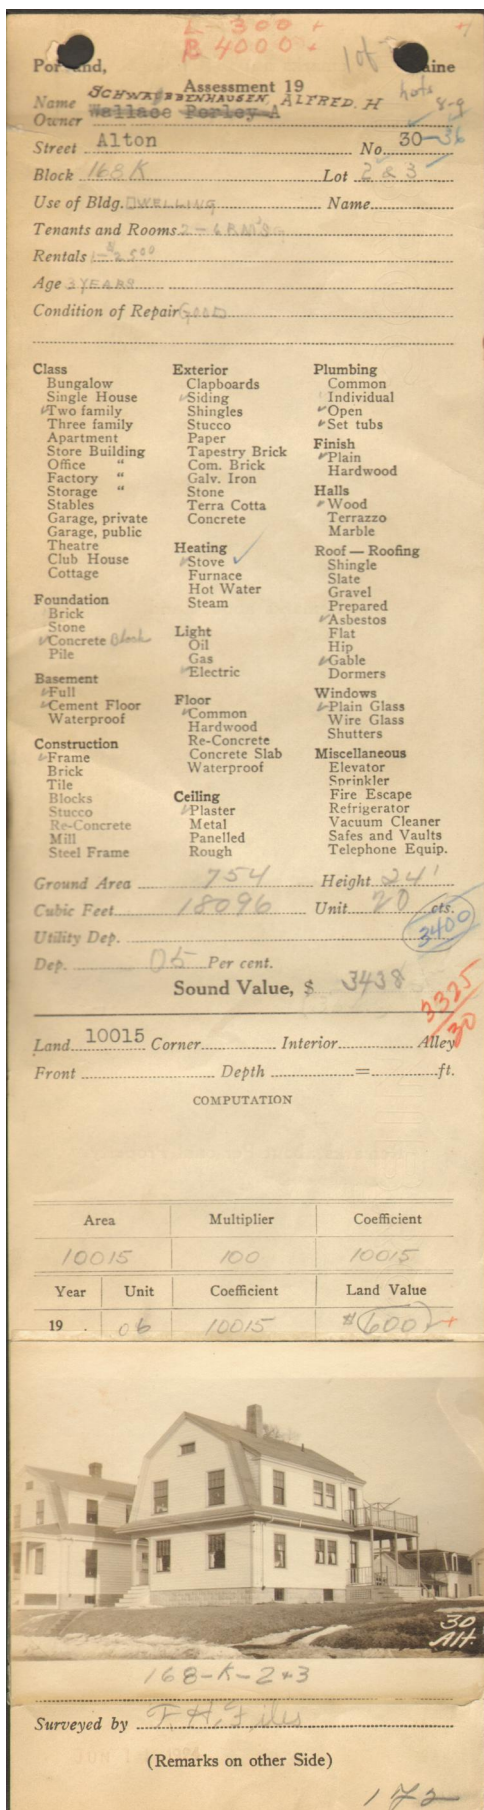 L - 300 +
B 4000 +
1 of
Por and, aine
Assessment 19
lots 8-9
Name SCHWARBBENHAUSEN, ALFRED. H
Owner Wallace Perley A
Street Alton No. 30-36
Block 168 K Lot 2 & 3
Use of Bldg. DWELLING Name
Tenants and Rooms 2-6 RM'S
Rentals 1-$2500
Age 3 YEARS
Condition of Repair GOOD
Class
Bungalow
Single House
Two family
Three family
Apartment
Store Building
Office "
Factory "
Storage "
Stables
Garage, private
Garage, public
Theatre
Club House
Cottage
Foundation
Brick
Stone
Concrete Block
Pile
Basement
Full
Cement Floor
Waterproof
Construction
Frame
Brick
Tile
Blocks
Stucco
Re-Concrete
Mill
Steel Frame
Exterior
Clapboards
Siding
Shingles
Stucco
Paper
Tapestry Brick
Com. Brick
Galv. Iron
Stone
Terra Cotta
Concrete
Heating
Stove
Furnace
Hot Water
Steam
Light
Oil
Gas
Electric
Floor
Common
Hardwood
Re-Concrete
Concrete Slab
Waterproof
Ceiling
Plaster
Metal
Panelled
Rough
Plumbing
Common
Individual
Open
Set tubs
Finish
Plain
Hardwood
Halls
Wood
Terrazzo
Marble
Roof — Roofing
Shingle
Slate
Gravel
Prepared
Asbestos
Flat
Hip
Gable
Dormers
Windows
Plain Glass
Wire Glass
Shutters
Miscellaneous
Elevator
Sprinkler
Fire Escape
Refrigerator
Vacuum Cleaner
Safes and Vaults
Telephone Equip.
Ground Area 754 Height 24'
Cubic Feet 18096 Unit 20 cts.
Utility Dep. 3400
Dep. 05 Per cent.
Sound Value, $ 3438
3325/30
Land 10015 Corner Interior Alley
Front Depth = ft.
COMPUTATION
Area Multiplier Coefficient
10015 100 10015
Year Unit Coefficient Land Value
19 . 06 10015 $600 +
30
Alt.
168-K-2+3
Surveyed by F. H. Files
(Remarks on other Side)
172